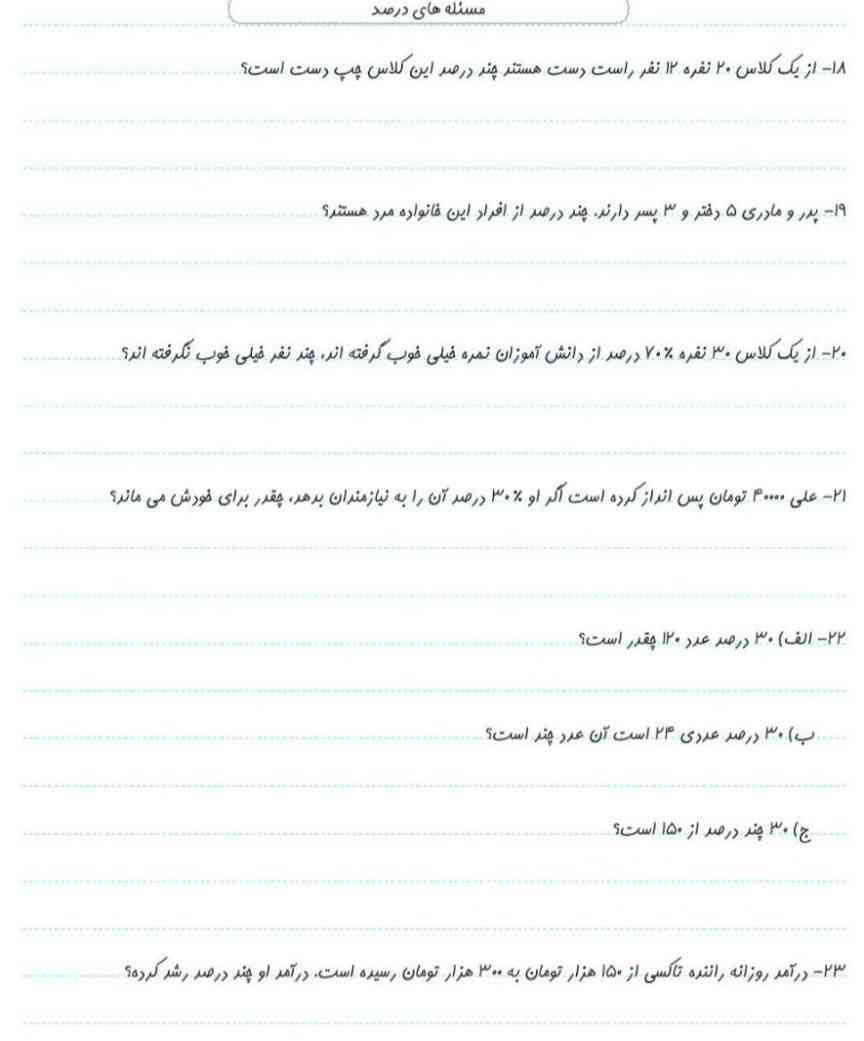 مسئله های درصد
۱۸- از یک کلاس ۲۰ نفره ۱۲ نفر راست دست هستند چند درصد این کلاس چپ دست است؟
۱۹- پدر و مادری ۵ دختر و ۳ پسر دارند. چند درصد از افراد این خانواده مرد هستند؟
۲۰- از یک کلاس ۳۰ نفره ۷۰٪ درصد از دانش آموزان نمره خیلی خوب گرفته اند، چند نفر خیلی خوب نگرفته اند؟
۲۱- علی ۴۰۰۰۰ تومان پس انداز کرده است اگر او ۳۰٪ درصد آن را به نیازمندان بدهد، چقدر برای خودش می ماند؟
۲۲- الف) ۳۰ درصد عدد ۱۲۰ چقدر است؟
ب) ۳۰ درصد عددی ۲۴ است آن عدد چند است؟
ج) ۳۰ چند درصد از ۱۵۰ است؟
۲۳- درآمد روزانه راننده تاکسی از ۱۵۰ هزار تومان به ۳۰۰ هزار تومان رسیده است. درآمد او چند درصد رشد کرده؟